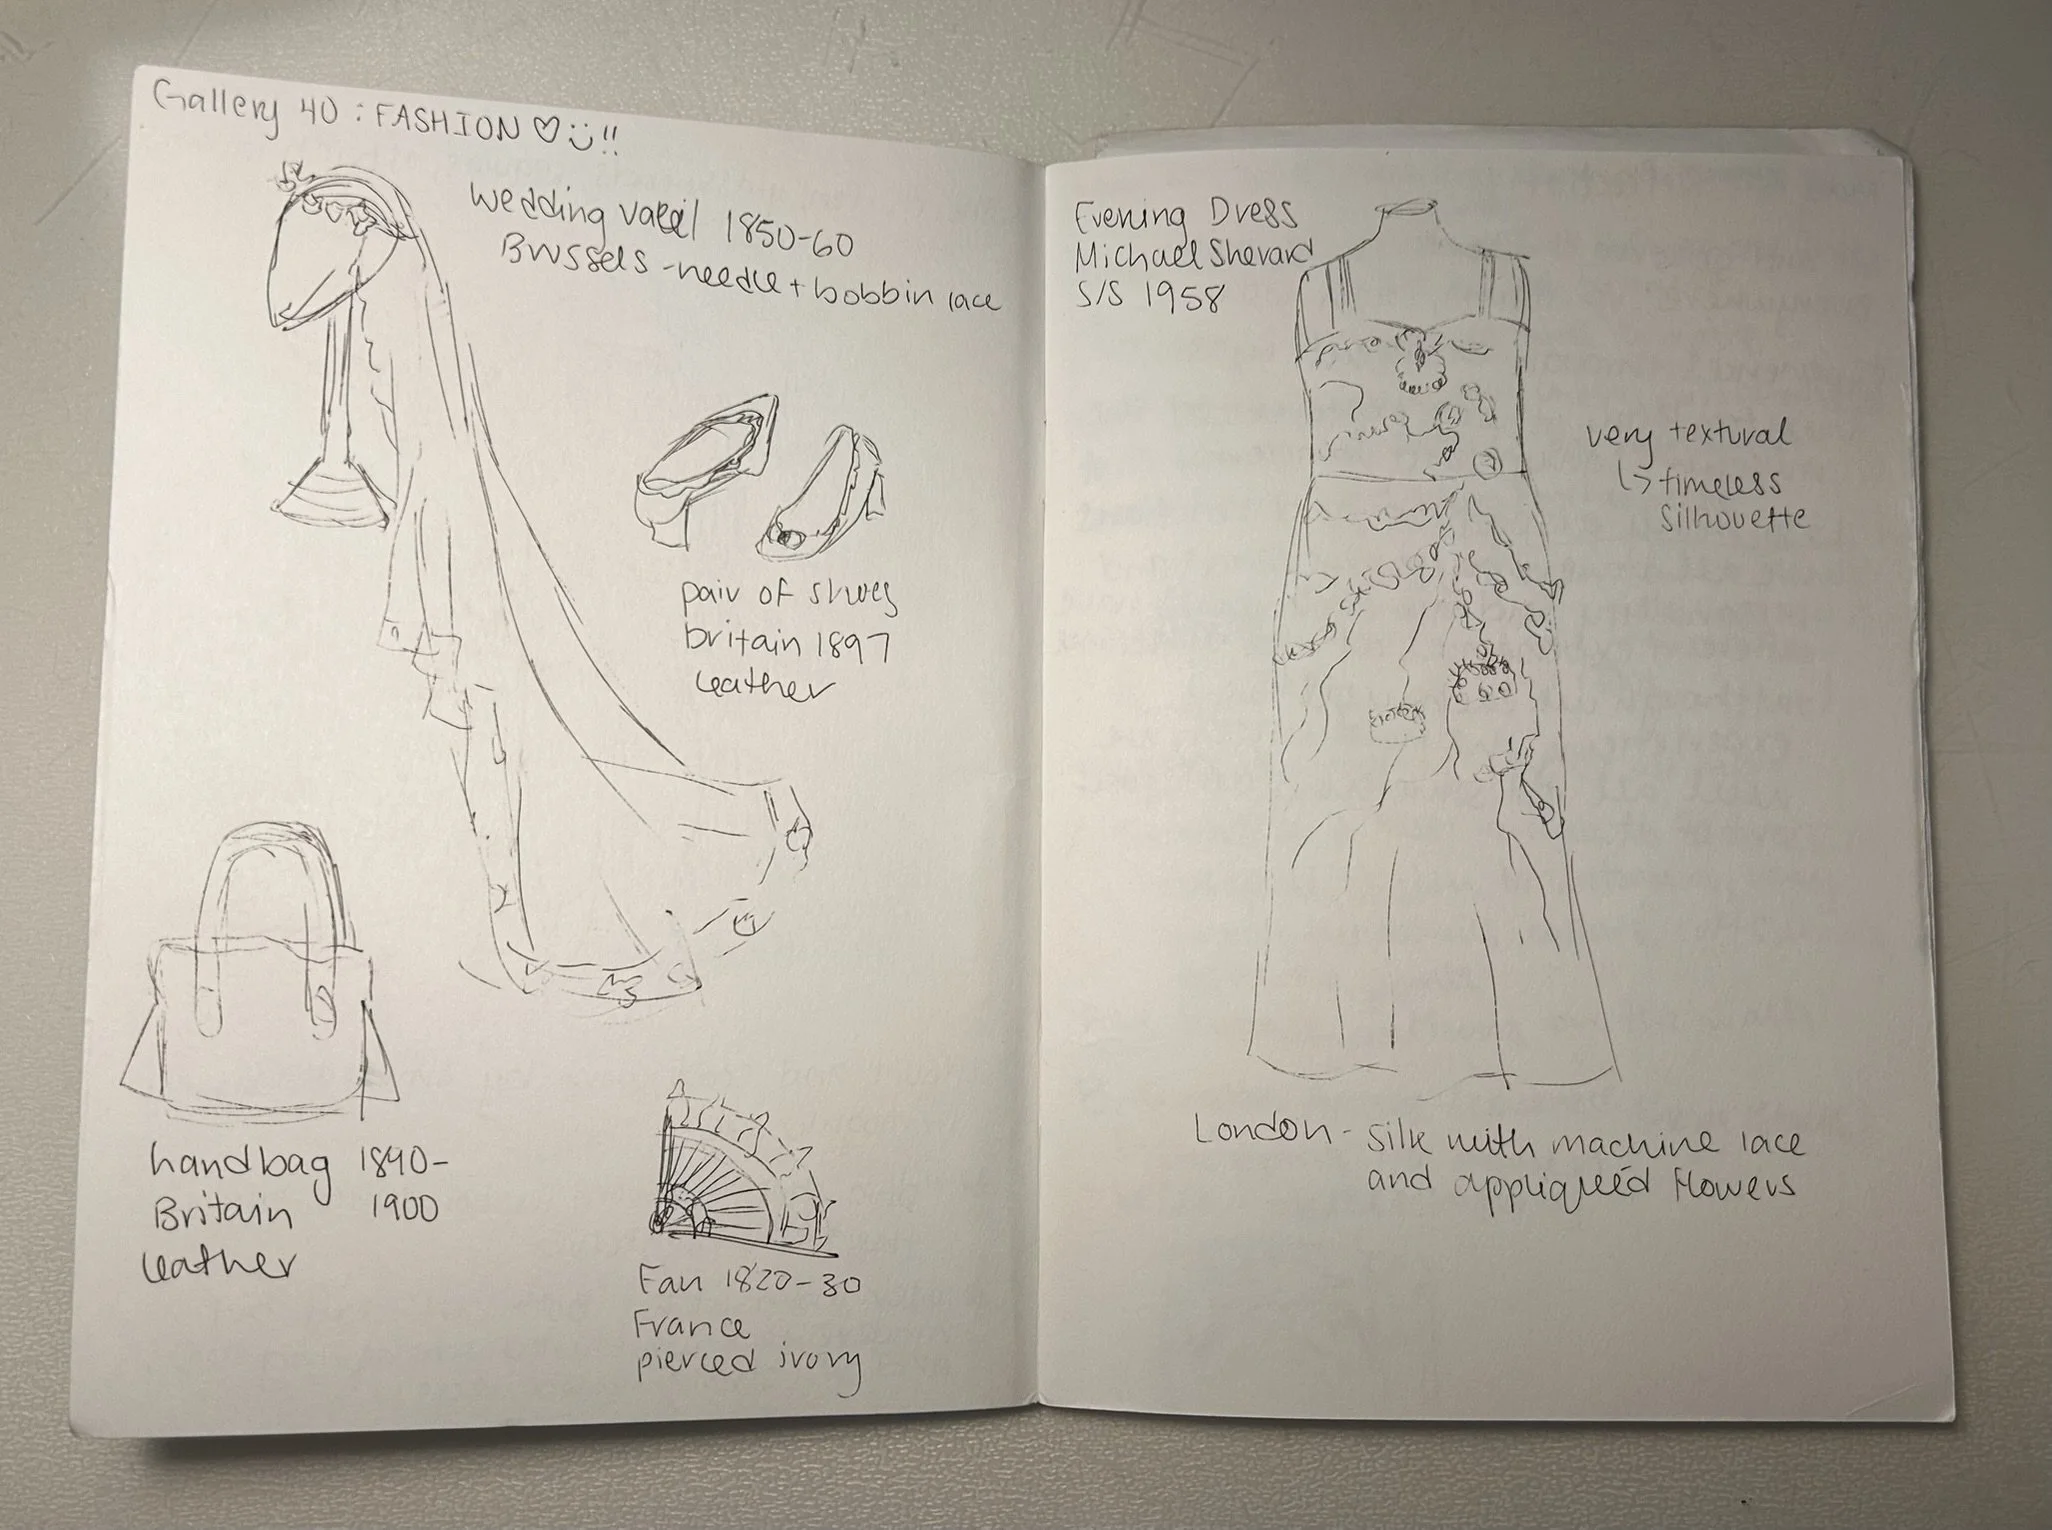 Gallery 40 : FASHION ♡ :) !!
wedding vaeil 1850-60
Brussels - needle + bobbin lace
pair of shoes
britain 1897
leather
handbag 1890-
Britain 1900
leather
Fan 1820-30
France
pierced ivory
Evening Dress
Michael Sherard
S/S 1958
very textural
↳ timeless
silhouette
London - silk with machine lace
and appliquéd flowers